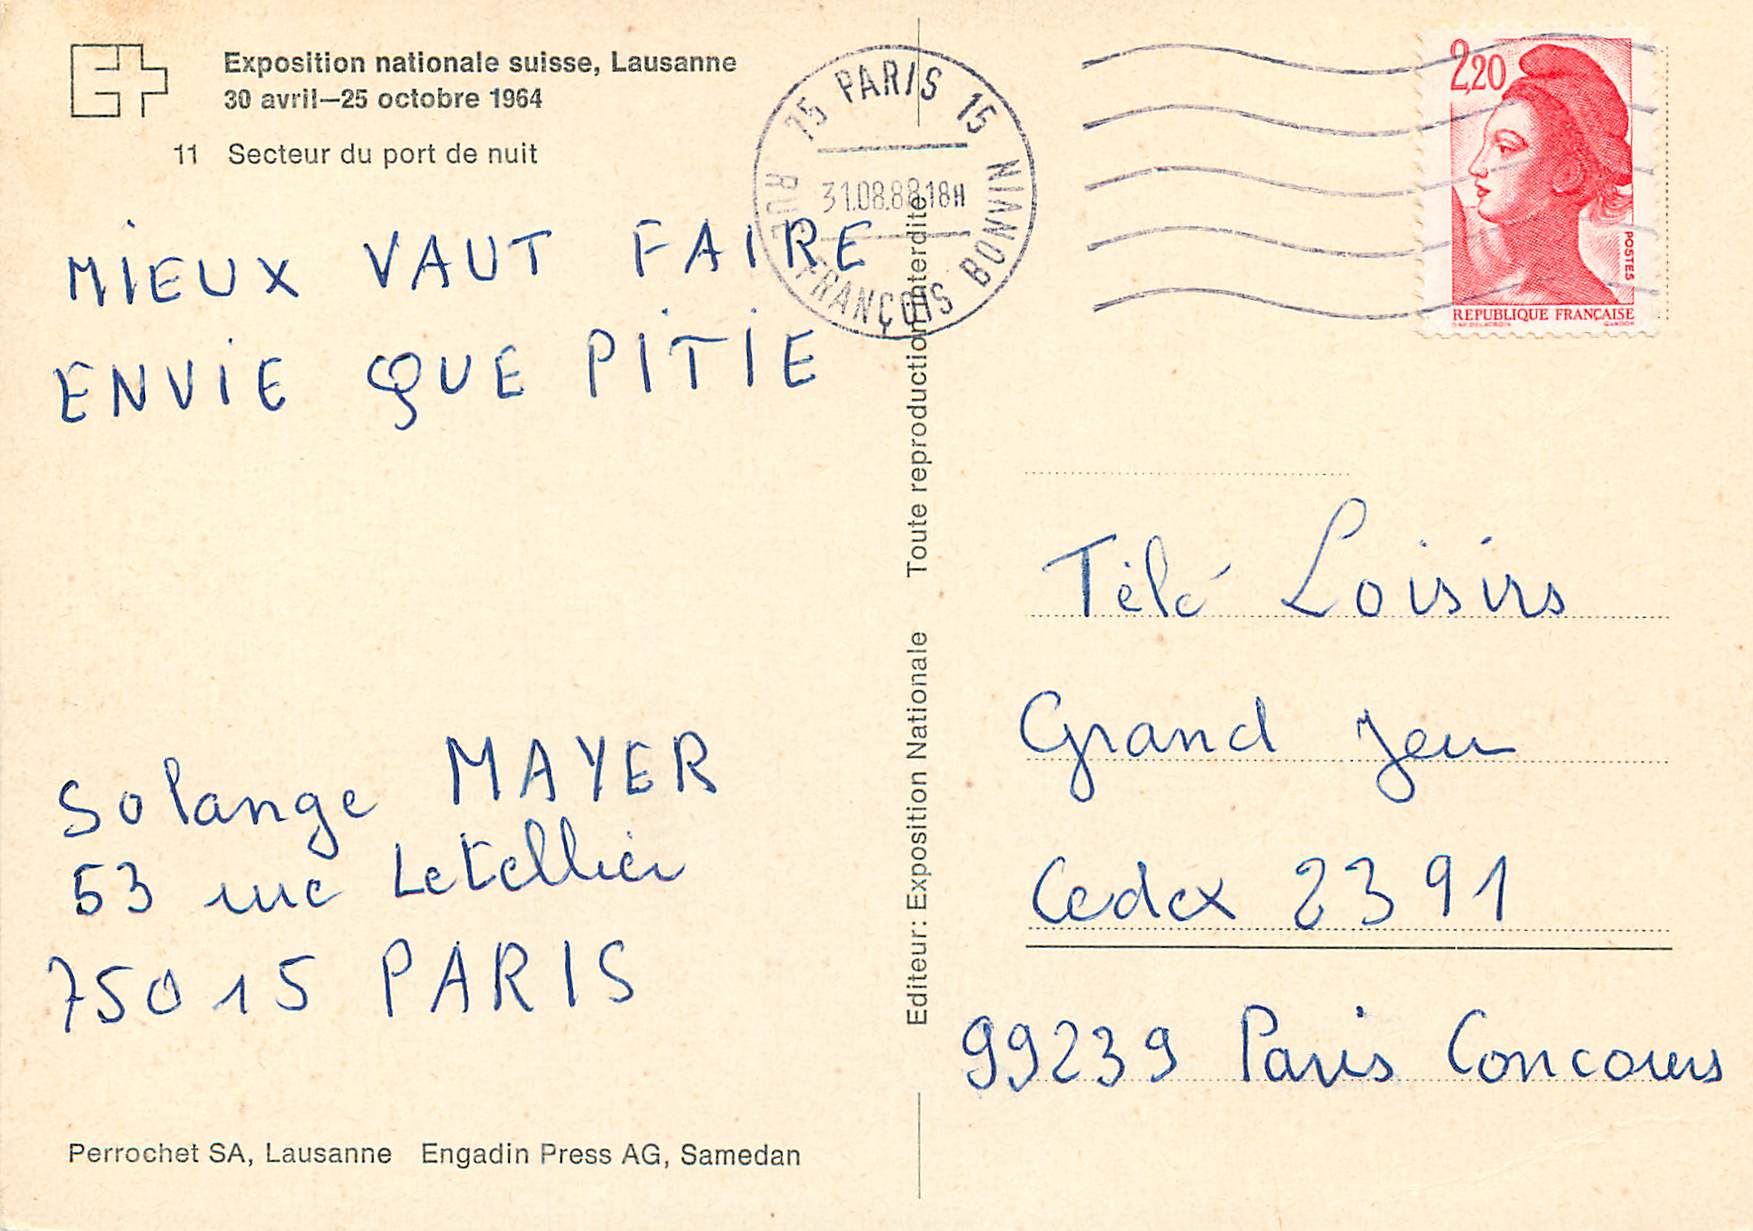 Exposition nationale suisse, Lausanne
30 avril–25 octobre 1964
11 Secteur du port de nuit
MIEUX VAUT FAIRE
ENVIE QUE PITIE
Solange MAYER
53 rue Letellier
75015 PARIS
Perrochet SA, Lausanne Engadin Press AG, Samedan
Editeur: Exposition Nationale Toute reproduction interdite
75 PARIS 15
31.08.88 18H
RUE FRANÇOIS BONVIN
2,20
POSTES
REPUBLIQUE FRANÇAISE
D'AP. DELACROIX GANDON
Télé Loisirs
Grand Jeu
Cedex 2391
99239 Paris Concours